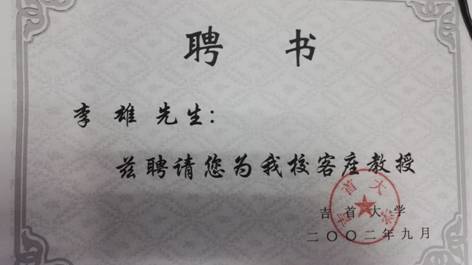 聘 书
李雄 先生:
兹聘请您为我校客座教授
吉首大学
二〇〇二年九月